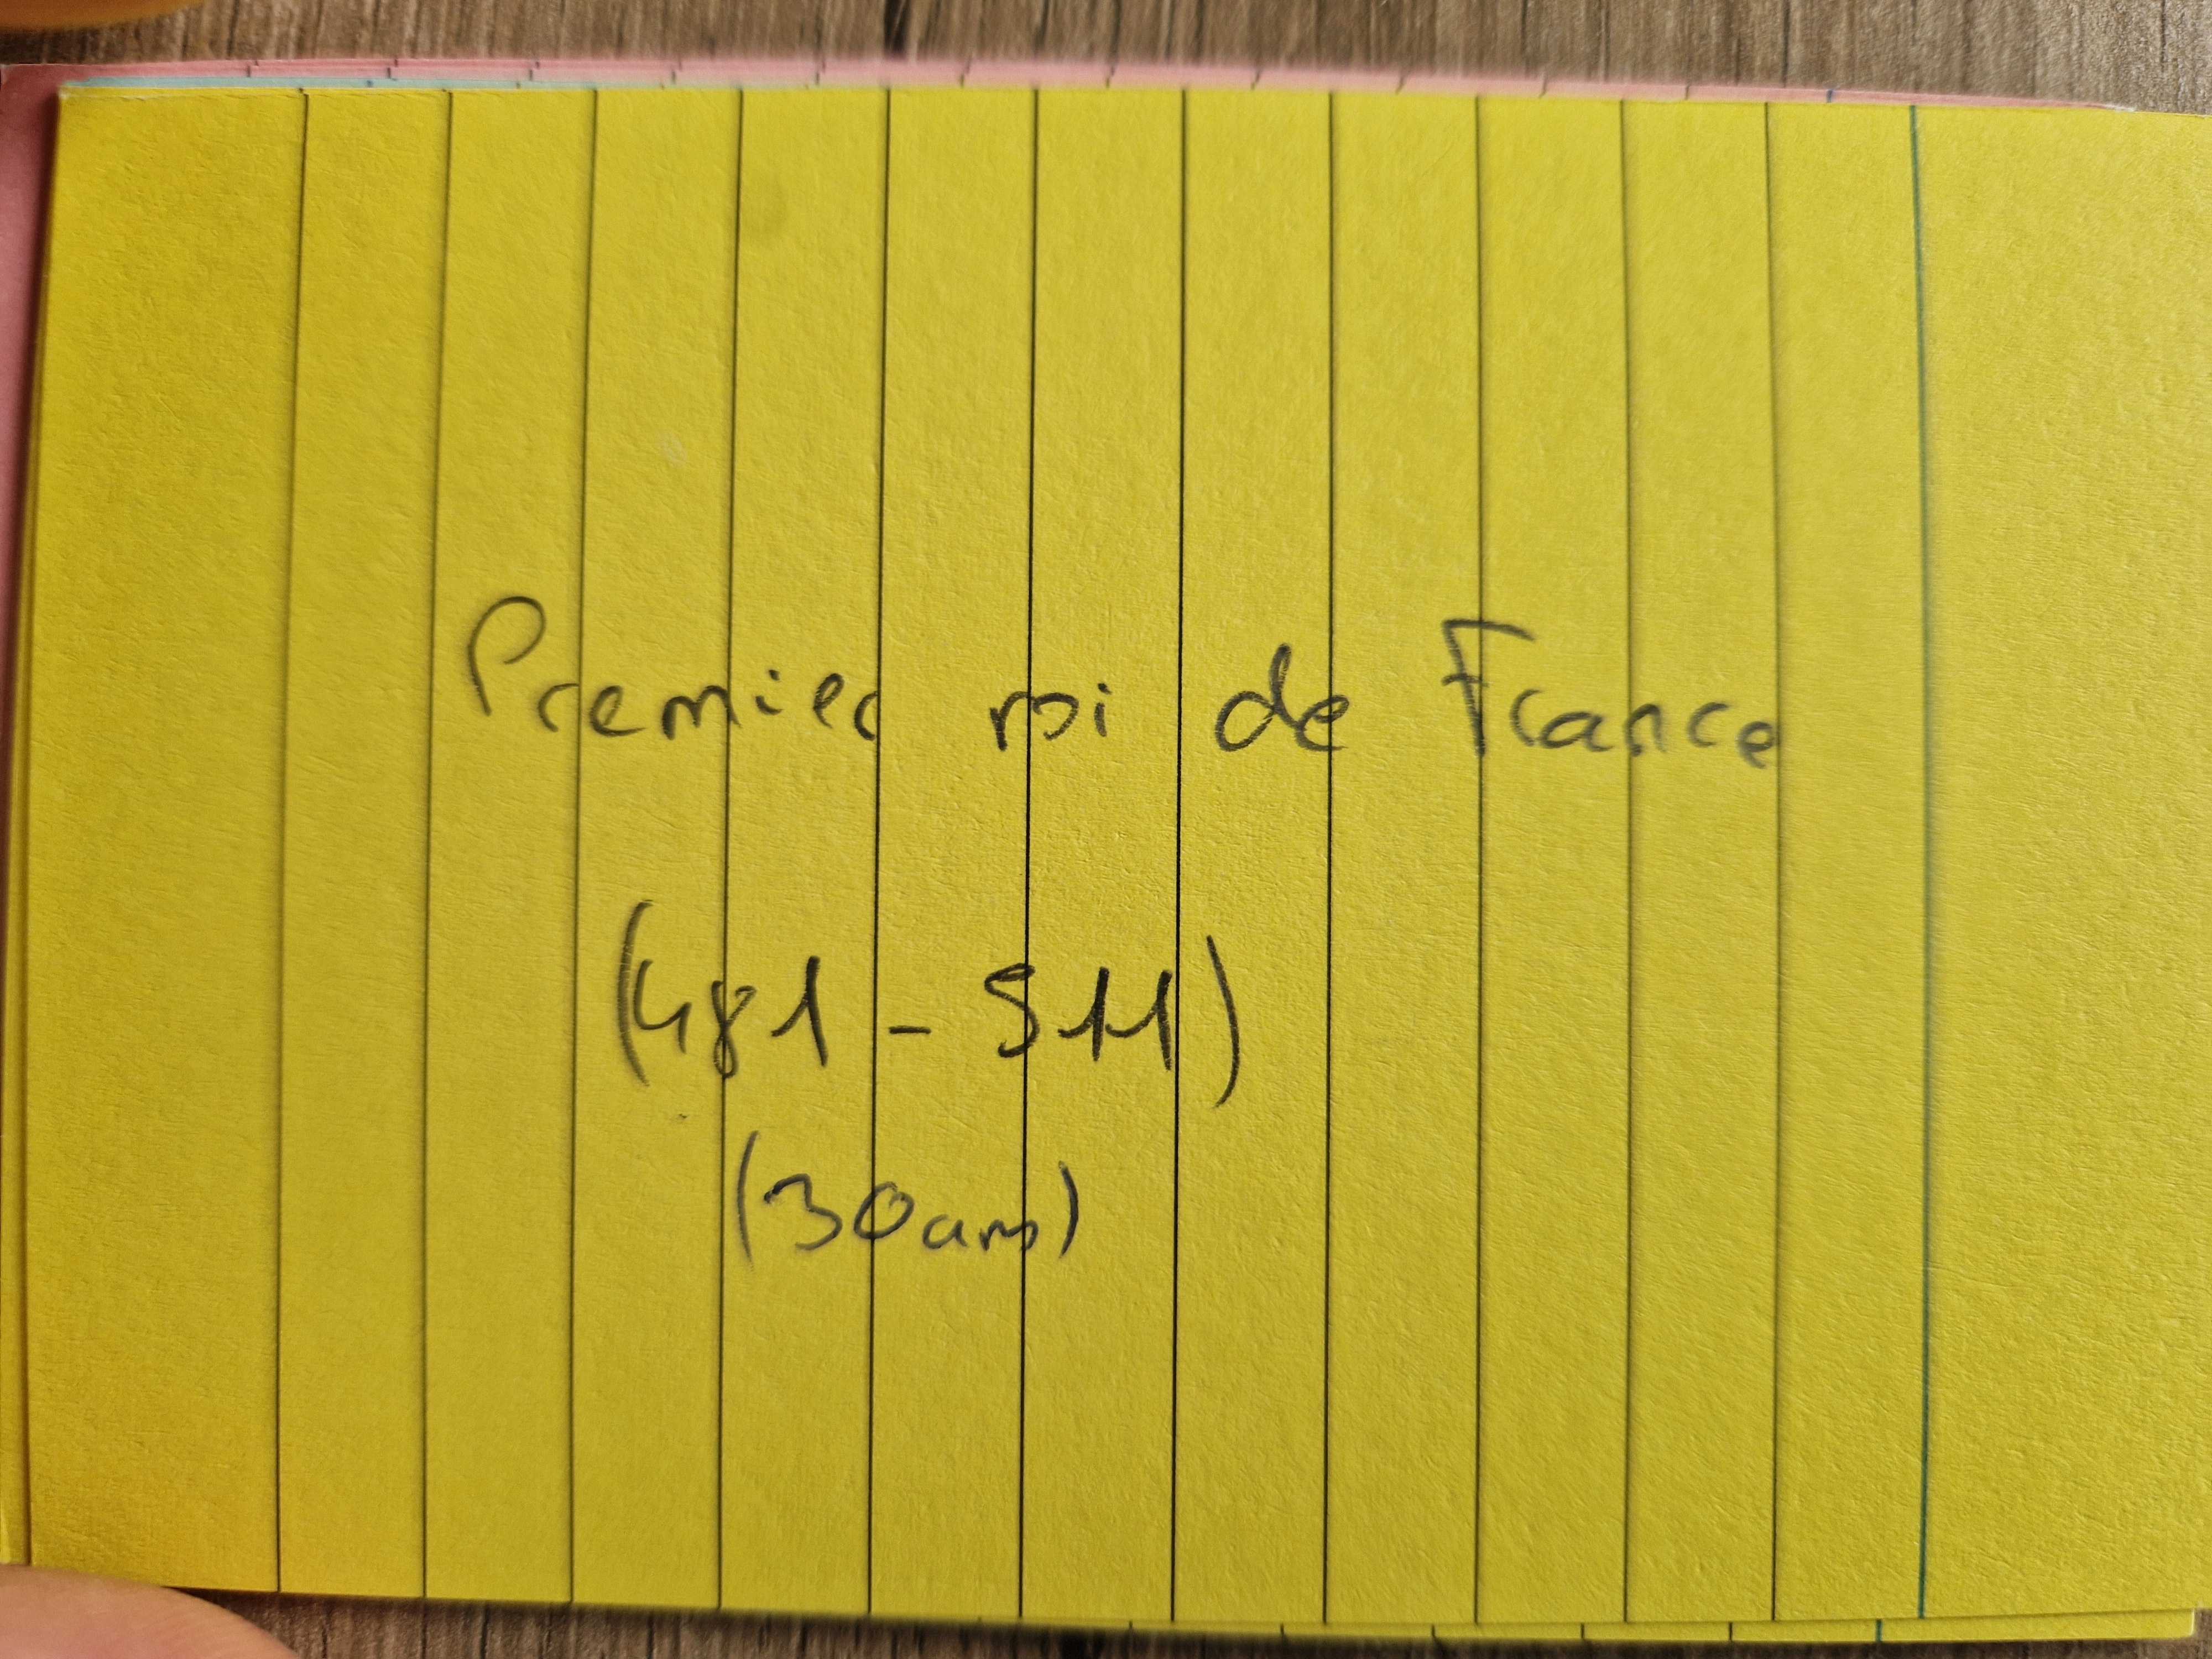 Premier roi de France
(481 - 511)
(30 ans)